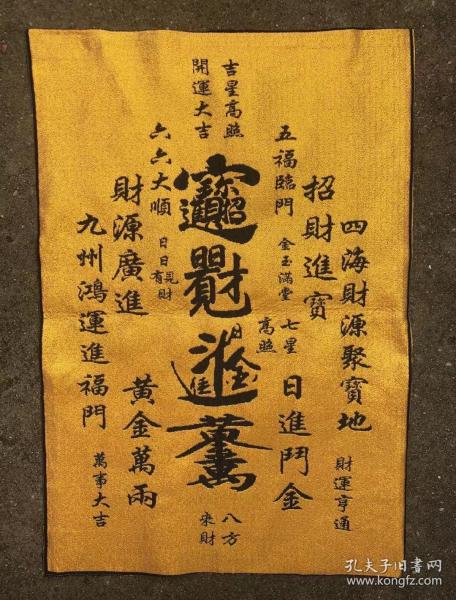 四海財源聚寶地
財運亨通
招財進寶
日進鬥金
五福臨門
金玉滿堂
七星
高照
吉星高照
開運大吉
招財進寶
日日見財
日進斗金
黃金萬兩
八方
來財
六六大順
見財
日日有
財源廣進
黃金萬兩
九州鴻運進福門
萬事大吉
孔夫子旧书网
www.kongfz.com